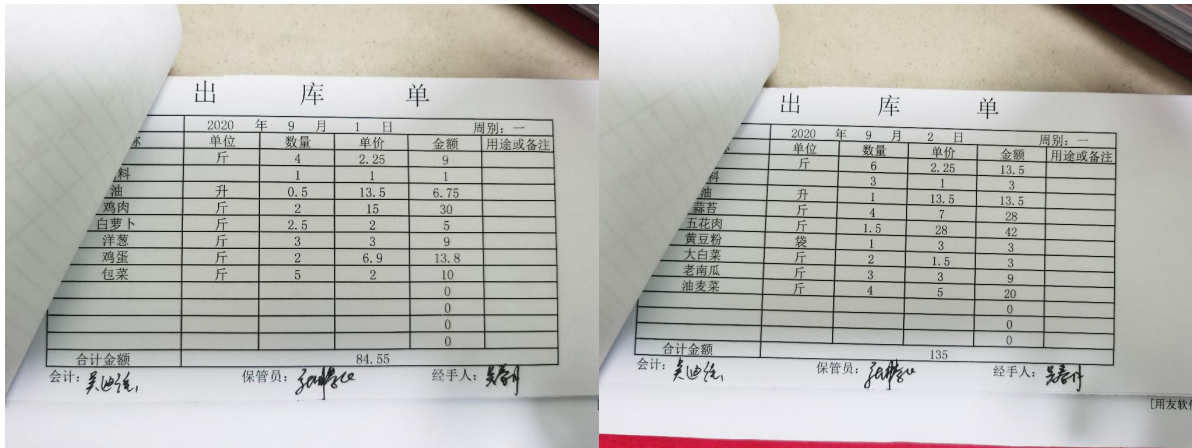 出 库 单
2020 年 9 月 1 日 周别：一
称 单位 数量 单价 金额 用途或备注
斤 4 2.25 9
料 1 1 1
油 升 0.5 13.5 6.75
鸡肉 斤 2 15 30
白萝卜 斤 2.5 2 5
洋葱 斤 3 3 9
鸡蛋 斤 2 6.9 13.8
包菜 斤 5 2 10
0
0
0
0
合计金额 84.55
会计： 保管员： 经手人：
出 库 单
2020 年 9 月 2 日 周别：一
单位 数量 单价 金额 用途或备注
斤 6 2.25 13.5
料 3 1 3
油 升 1 13.5 13.5
蒜苔 斤 4 7 28
五花肉 斤 1.5 28 42
黄豆粉 袋 1 3 3
大白菜 斤 2 1.5 3
老南瓜 斤 3 3 9
油麦菜 斤 4 5 20
0
0
0
合计金额 135
会计： 保管员： 经手人：
[用友软件